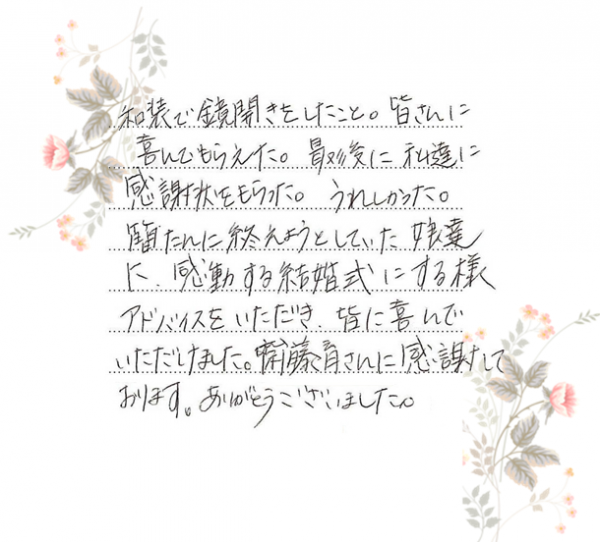 和装で鏡開きをしたこと。皆さんに
喜んでもらえた。最後に私達に
感謝状をもらった。うれしかった。
簡たんに終えようとしていた娘達
に、感動する結婚式にする様
アドバイスをいただき、皆に喜んで
いただけました。齋藤育さんに感謝して
おります。ありがとうございました。